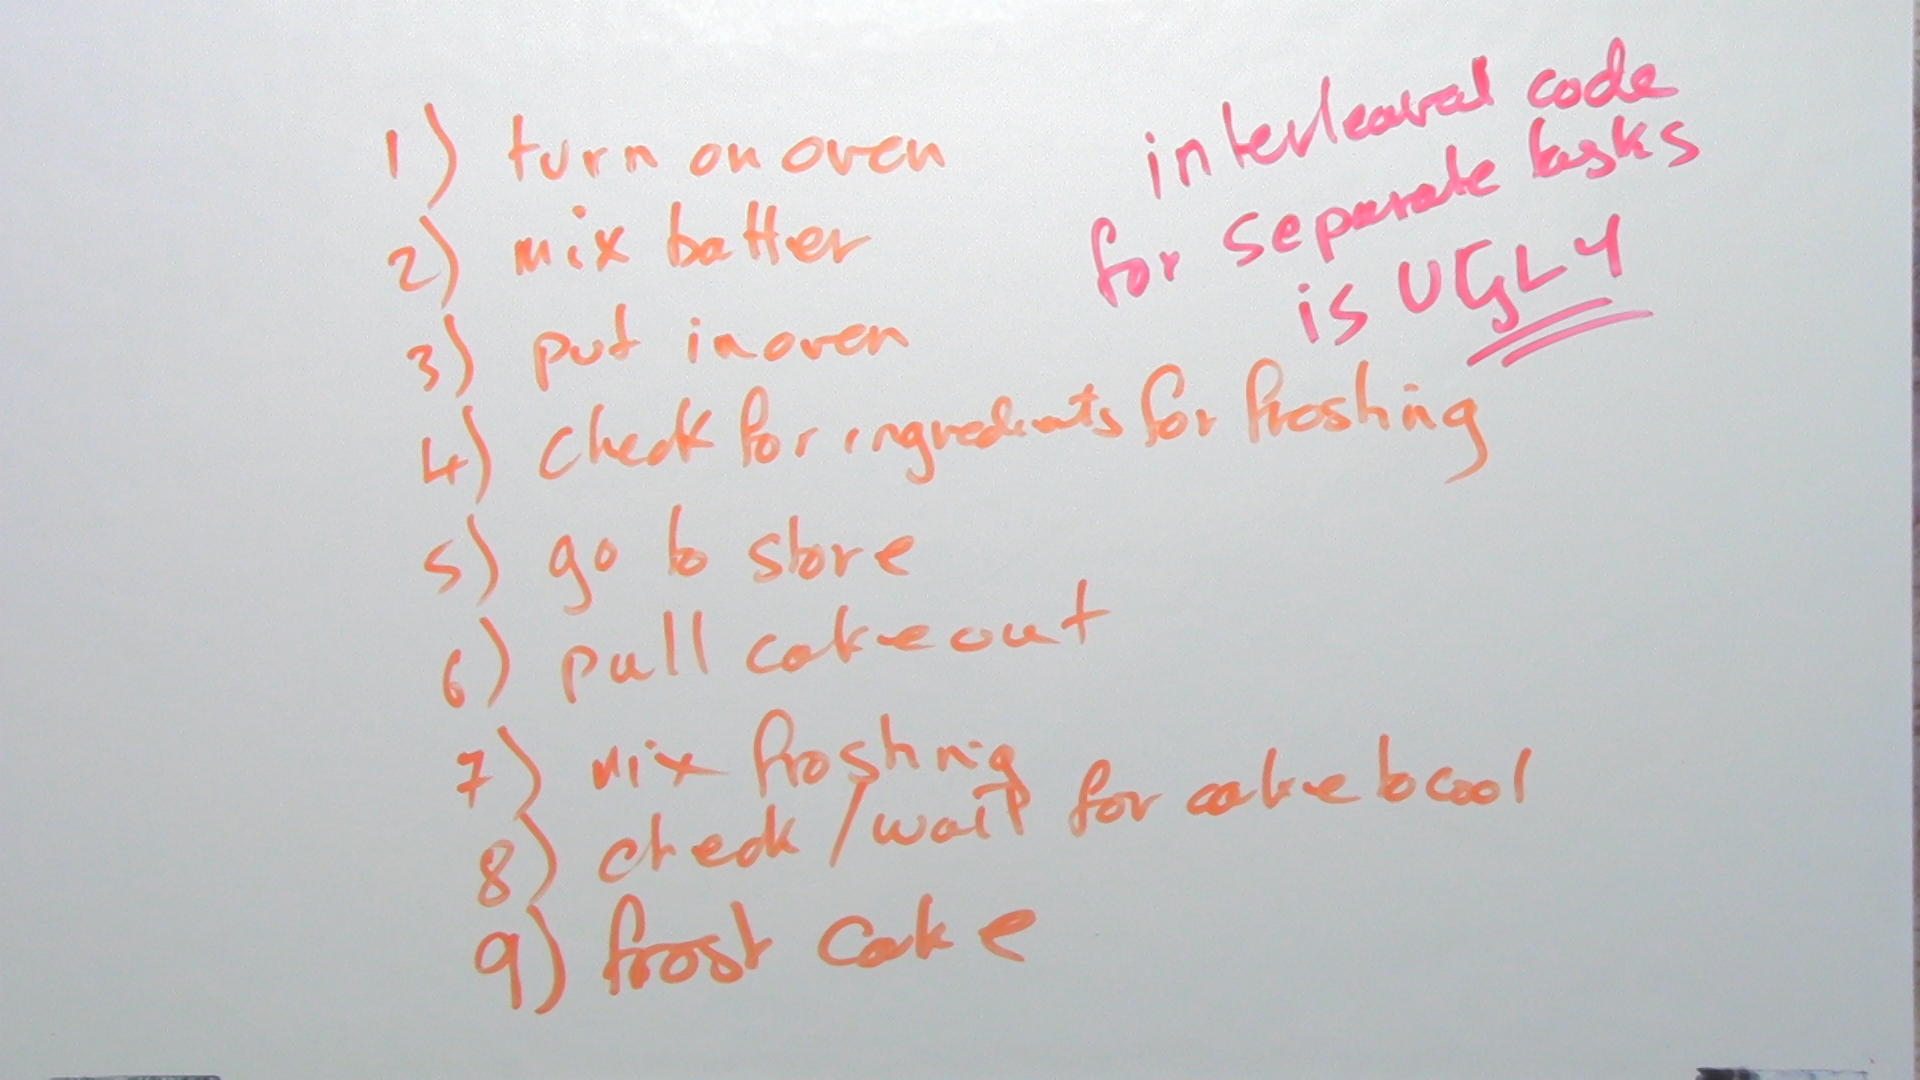 1) turn on oven
2) mix batter
3) put in oven
4) check for ingredients for frosting
5) go to store
6) pull cake out
7) mix frosting
8) check / wait for cake to cool
9) frost cake
interleaved code
for separate tasks
is UGLY